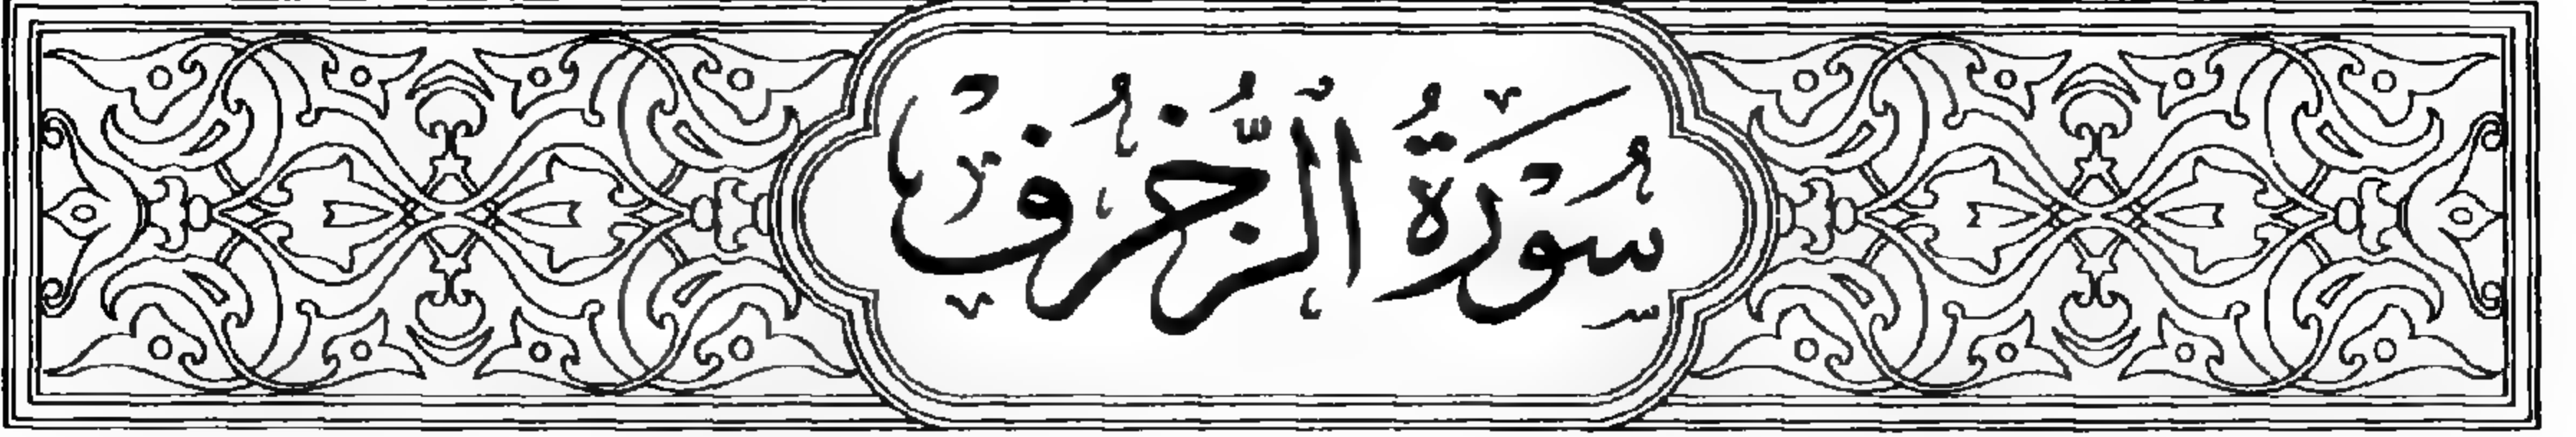 سُورَةُ ٱلزُّخْرُف